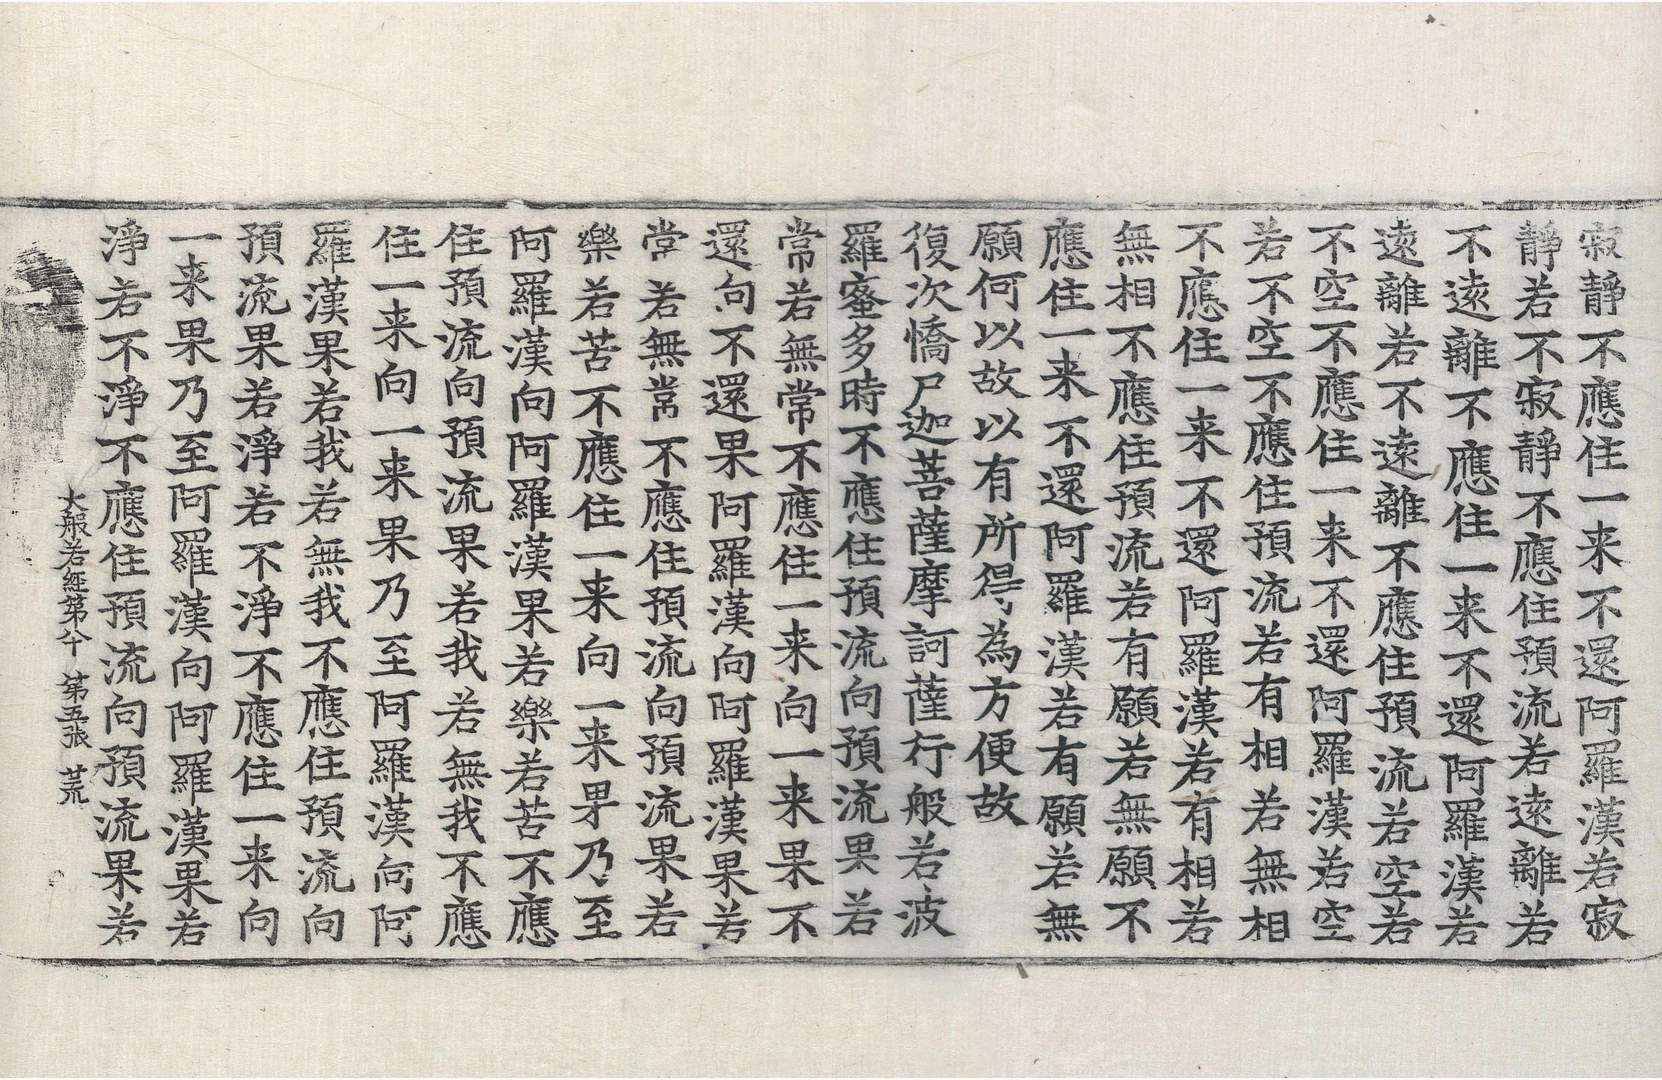 寂靜不應住一来不還阿羅漢若寂
靜若不寂靜不應住預流若遠離若
不遠離不應住一来不還阿羅漢若
遠離若不遠離不應住預流若空若
不空不應住一来不還阿羅漢若空
若不空不應住預流若有相若無相
不應住一来不還阿羅漢若有相若
無相不應住預流若有願若無願不
應住一来不還阿羅漢若有願若無
願何以故以有所得為方便故
復次憍尸迦菩薩摩訶薩行般若波
羅蜜多時不應住預流向預流果若
常若無常不應住一来向一来果不
還向不還果阿羅漢向阿羅漢果若
常若無常不應住預流向預流果若
樂若苦不應住一来向一来果乃至
阿羅漢向阿羅漢果若樂若苦不應
住預流向預流果若我若無我不應
住一来向一来果乃至阿羅漢向阿
羅漢果若我若無我不應住預流向
預流果若淨若不淨不應住一来向
一来果乃至阿羅漢向阿羅漢果若
淨若不淨不應住預流向預流果若
大般若經第八十 第五張 荒